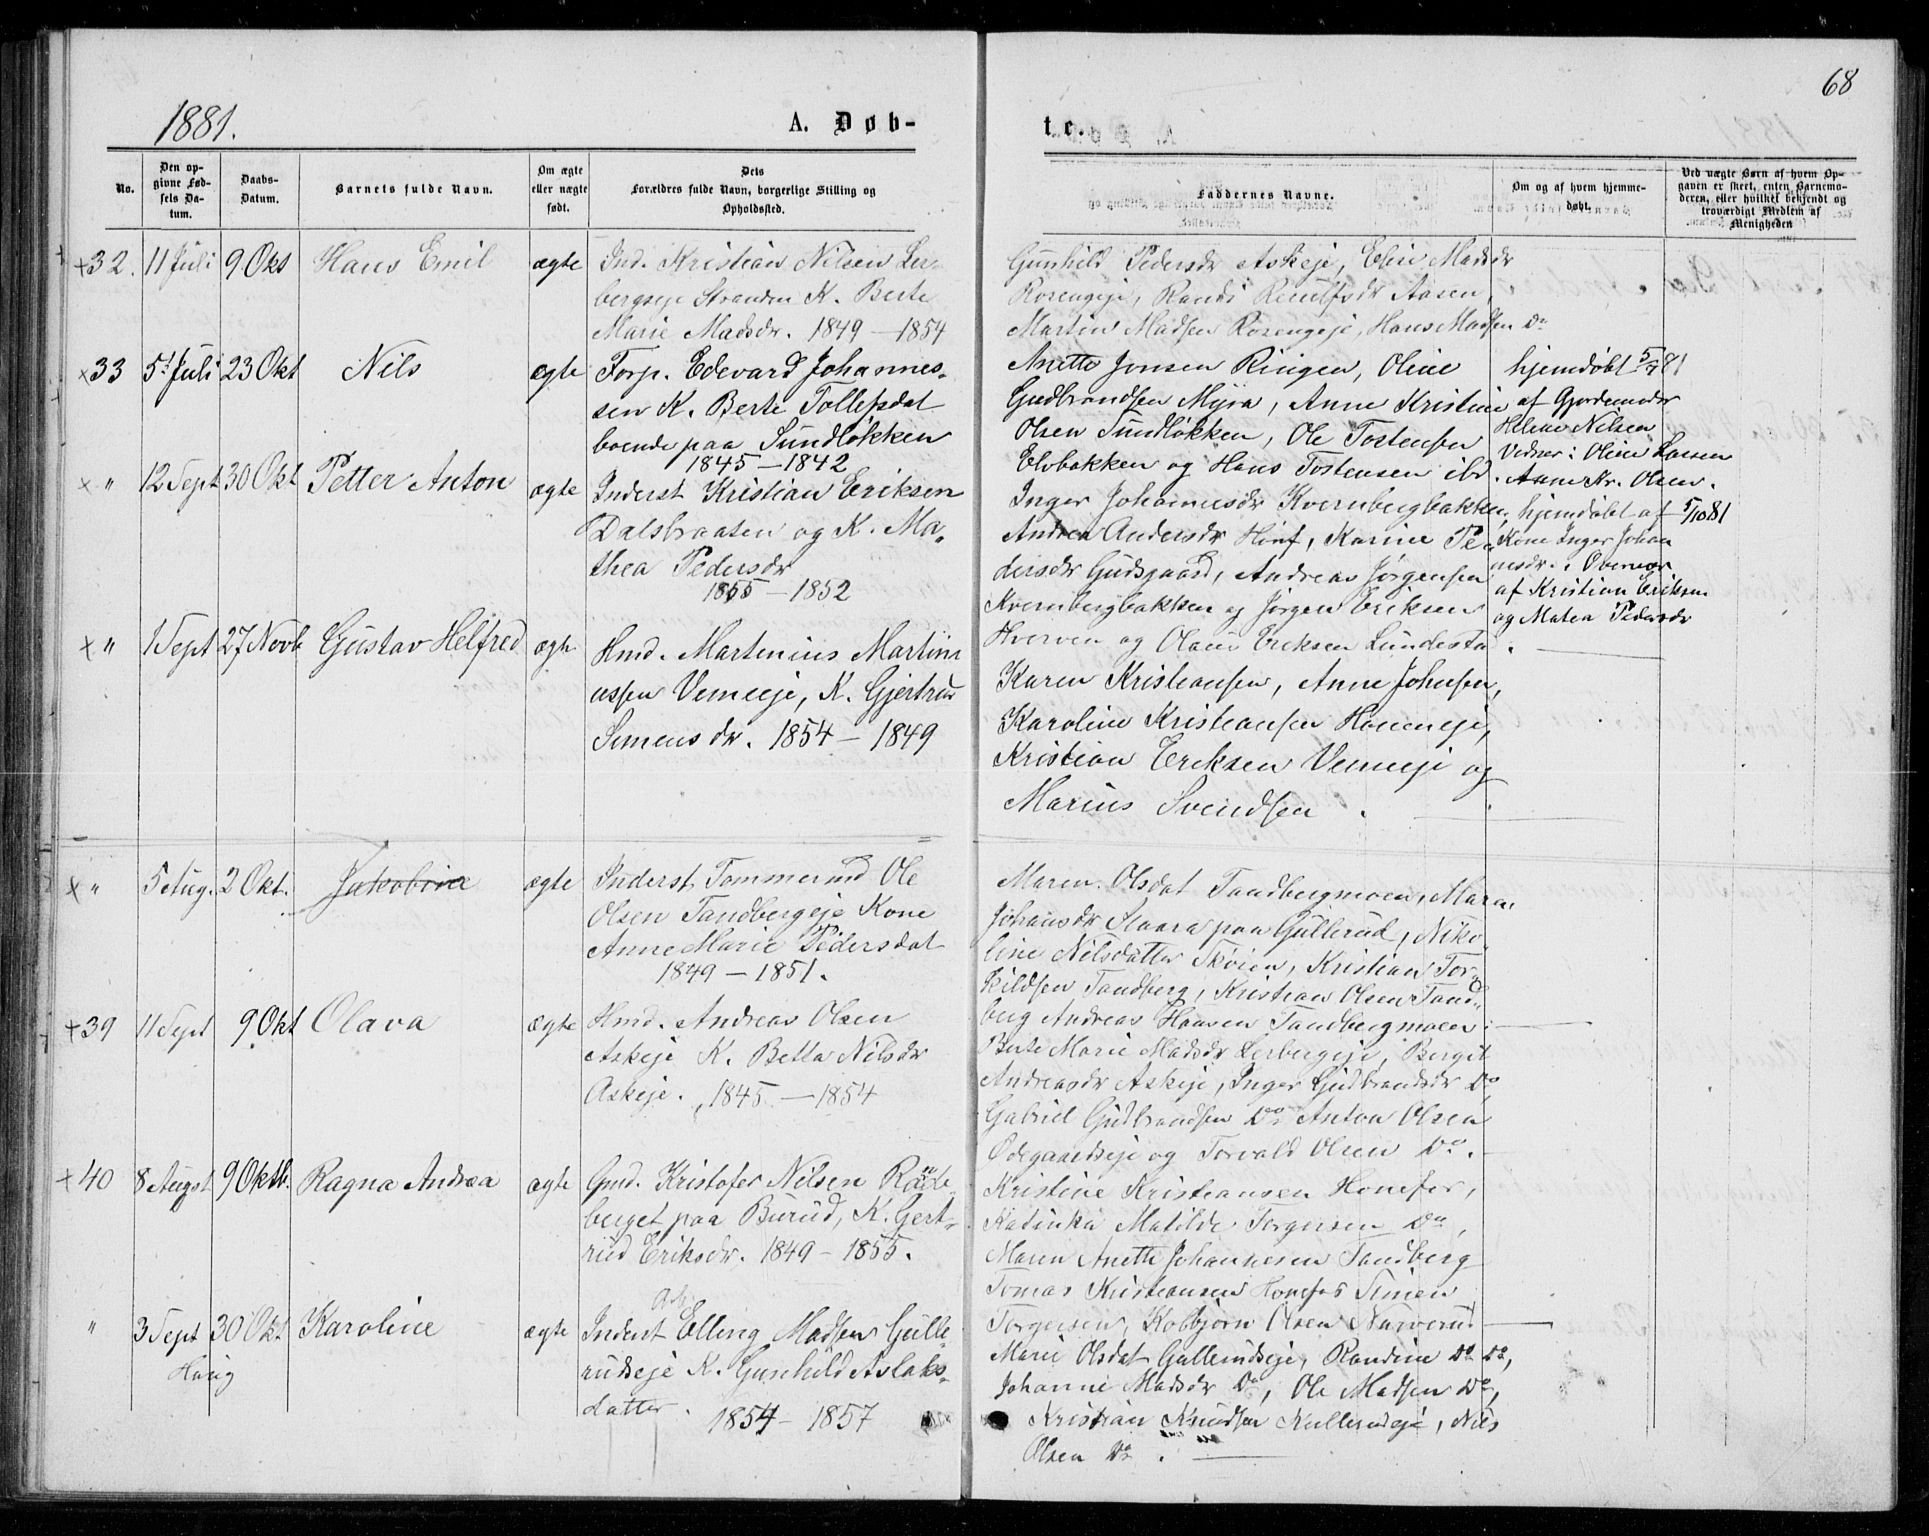 68
1881.
A. Døb-
te.
No.
Den opgivne Fødsels Datum.
Daabs-Datum.
Barnets fulde Navn.
Om ægte eller uægte født.
Dets Forældres fulde Navn, borgerlige Stilling og Opholdssted.
Faddernes Navne.
Om og af hvem hjemmedøbt.
Ved uægte Børn af hvem Opgaven er skeet, enten Barnemoderen, eller hvilket bekjendt og troværdigt Medlem af Menigheden
+32. 11 Juli 9 Okt Hans Emil ægte Ind. Kristian Nilsen Ler-
bergseje Stranden K. Berte
Marie Madsdr. 1849 – 1854
Gunhild Pedersdr Askeje, Eline Madsdr
Rosengeje, Randi Aasen,
Martin Madsen Rosengeje, Hans Madsen Do
×33 5t Juli 23 Okt Nils ægte Torp. Edevard Johannes-
sen K. Berte Tollefsdat
boende paa Sundløkken
1845 – 1842
Anette Jonsen Ringen, Oline
Gudbrandsen Myra, Anne Kristine
Olsen Sundløkken, Ole Tostensen
Elvbakken og Hans Tostensen ibd.
hjemdøbt 5/7 81
af Gjordemoder
Helene Nilsen
Vidner: Oline Larsen
Anne Kr. Olsen.
× " 12 Sept 30 Okt Petter Anton ægte Inderst Kristian Eriksen
Dalsbraaten og K. Ma-
thea Pedersdr
1855 – 1852
Inger Johannesdr Kvernbergbakken,
Andrea Andersdr Hønf, Karine Pe-
dersdr Gudsgaard, Andreas Jørgensen
Kvernbergbakken og Jørgen Eriksen
Hverven og Olaus Eriksen Lundesta.
hjemdøbt af 5/10 81
Kone Inger Johan
nesdr. i Overvær
af Kristian Eriksen
og Matea Pedersdr
× " 1 Sept 27 Novb Gustav Helfred ægte Hmd. Martenius Martini
ussen Vemeeje, K. Gjertrud
Simensdr. 1854 – 1849
Karen Kristiansen, Anne Johnsen,
Karoline Kristiansen Honeneje,
Kristian Eriksen Vemeeje og
Marius Svendsen.
× " 5 Aug. 2 Okt. Jakobine ægte Inderst Tommermd Ole
Olsen Tandbergeje Kone
Anne Marie Pedersdat
1849 – 1851.
Maren Olsdat Tandbergmoen, Maren
Johansdr Slaara paa Gullerud, Niko-
line Nilsdatter Skøien, Kristian Tor-
kildsen Tandberg, Kristian Olsen Tand-
berg Andreas Hansen Tandbergmoen.
+39 11 Sept 9 Okt Olava ægte Hmd. Andreas Olsen
Askeje K. Betta Nilsdr
Askeje. 1845 – 1854
Berte Marie Madsdr Lerbergeje, Bergit
Andreasdr Askeje, Inger Gudbrandsdr Do
Gabriel Gudbrandsen Do Anton Olsen
Ødegaardseje og Torvald Olsen Do.
+40 8 August 9 Oktb. Ragna Andrea ægte Gmd. Kristofer Nilsen Rade
berget paa Burud, K. Gert-
rud Eriksdr. 1849 – 1855.
Kristine Kristiansen Honefos,
Katinka Matilde Torgersen Do,
Maren Anette Johannesen Tandberg
Tomas Kristiansen Honefos Simen
Torgersen, Kolbjørn Olsen Narverud
" 3 Sept 30 Okt Karoline ægte Inderst Elling Madsen Gulle-
Houg
rudseje K. Gunhild Aslaks-
datter. 1854 – 1857
Marie Olsdat Gullerudseje, Randine Do Do,
Johanne Madsdr Do, Ole Madsen Do,
Kristian Knudsen Kullerudseje, Nils
Olsen Do.